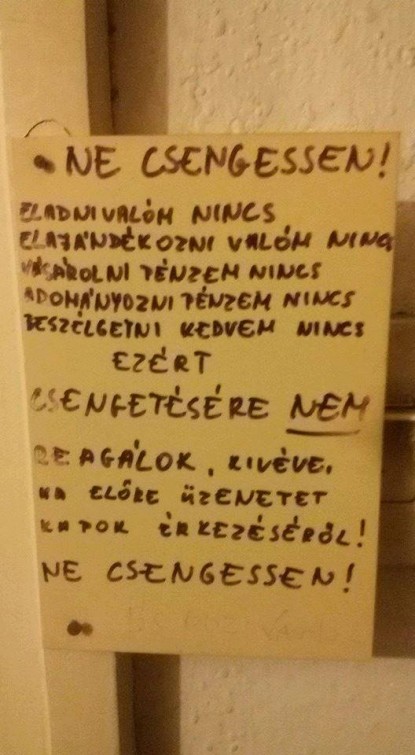 NE CSENGESSEN!
ELADNIVALÓM NINCS
ELAJÁNDÉKOZNI VALÓM NINCS
VÁSÁROLNI PÉNZEM NINCS
ADOMÁNYOZNI PÉNZEM NINCS
BESZÉLGETNI KEDVEM NINCS
EZÉRT
CSENGETÉSÉRE NEM
REAGÁLOK, KIVÉVE,
HA ELŐRE ÜZENETET
KAPOK ÉRKEZÉSÉRŐL!
NE CSENGESSEN!